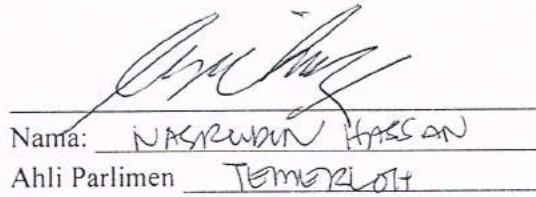 Nama: NASRUDIN HASSAN
Ahli Parlimen TEMERLOH